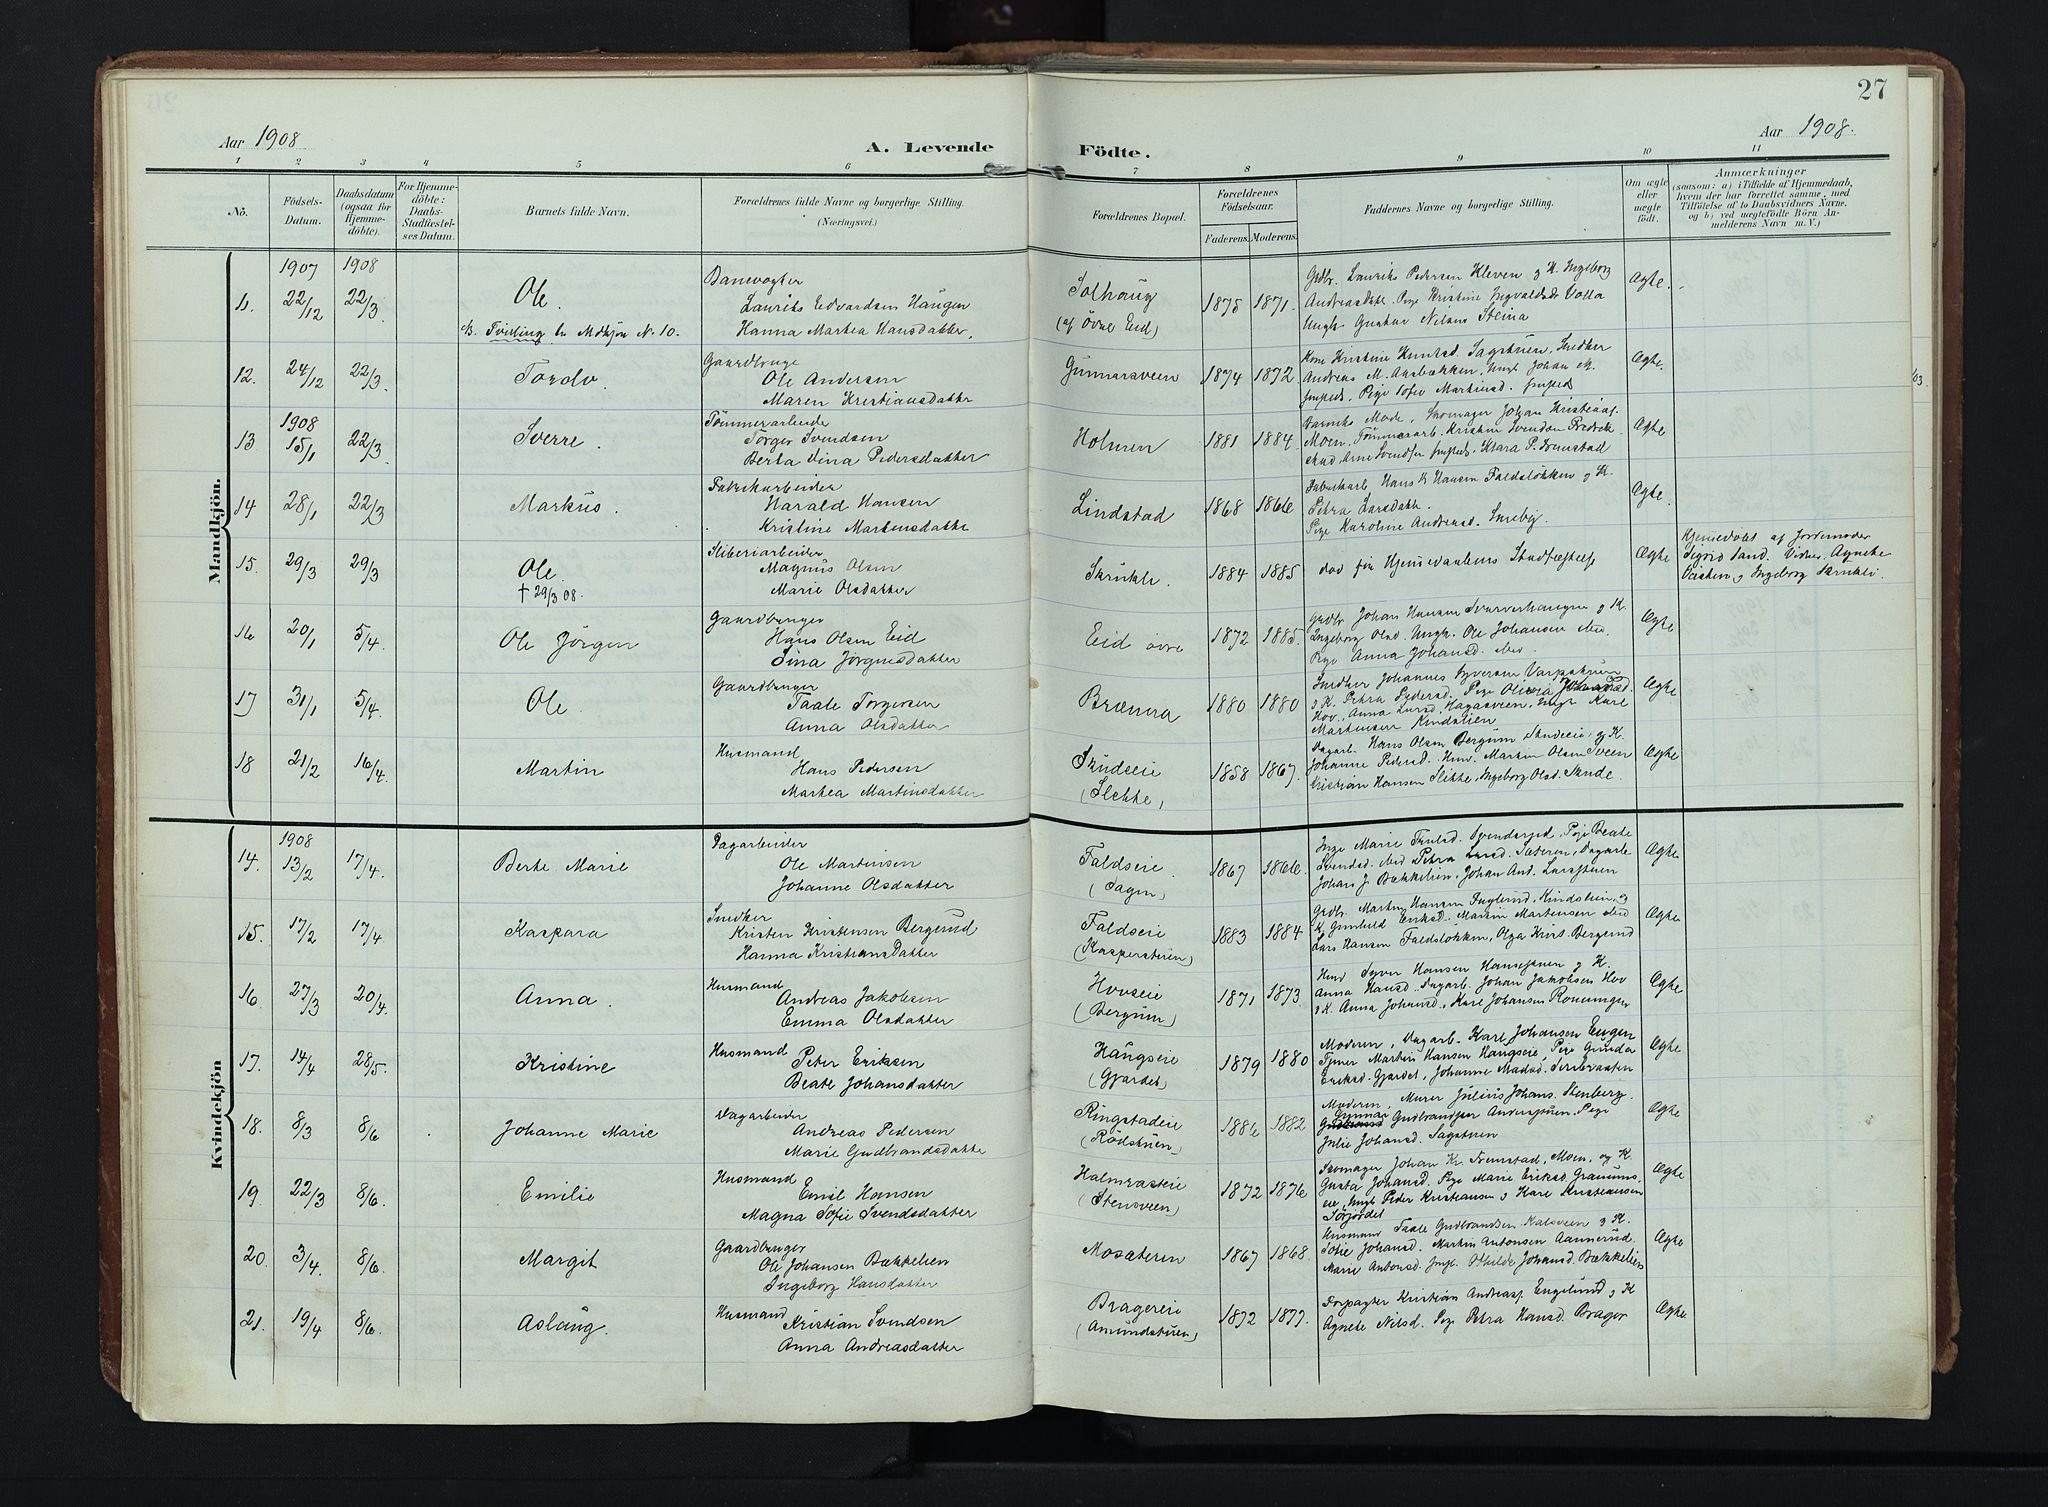 27
Aar 1908
A. Levende
Födte.
Aar 1908.
1 2 3 4 5 6 7 8 9 10 11
No.
Födsels-
Datum.
Daabsdatum
(ogsaa for
Hjemme-
döbte).
For Hjemme-
döbte:
Daabs-
Stadfæstel-
ses Datum.
Barnets fulde Navn.
Forældrenes fulde Navne og borgerlige Stilling.
(Næringsvei.)
Forældrenes Bopæl.
Forældrenes
Födselsaar.
Faderens. Moderens.
Faddernes Navne og borgerlige Stilling.
Om ægte
eller
uægte
födt.
Anmærkninger
(saasom: a) i Tilfælde af Hjemmedaab,
hvem der har forrettet samme, med
Tilföielse af to Daabsvidners Navne.
og b) ved uægtefödte Börn An-
melderens Navn m. V.)
Mandkjön.
1907 1908
11. 22/12 22/3 Ole.
Tvilling N. 10.
Banevogter
Laurits Edvardsen Haugen
Hanna Markea Hansdatter.
Solhaug
(af Övre Eid)
1875 1871.
Grdbr. Laurits Pedersen Kleven g K. Ingeborg
Andreasdatt. Pige Kristine Volla
Ungk. Gunnar Nilsen Steina
Ægte.
12. 24/12 22/3 Tordv.
Gaardbruger
Ole Andersen
Maren Kristiansdatter
Gunnarsveen
1874 1872
Kone Kristine Sagstuen. Snedker
Andreas M. Johan M.
Pige Sofie Martinsd.
Ægte.
1908
13 15/1 22/3 Sverre.
Tömmerarbeider
Torger Svendsen
Berta Sina Pedersdatter
Holmen
1881 1884
Skomager Johan
Moen. Kristian Svendsen
Arne Svendsen Klara P. Svenstad
Ægte
14 28/1 22/3 Markus.
Fabrikarbeider
Harald Hansen
Kristine Martinsdatter
Lindstad
1868 1866
Hans K Hansen Faldslökken g K.
Petra Larsdatt.
Pige Karoline Andreasd. Smeby.
Ægte.
15. 29/3 29/3 Ole.
† 29/3 08.
Sliberiarbeider
Magnus Olsen
Marie Olsdatter
Skrukli.
1884 1885
död för Hjemmedaabens Stadfæstelse
Ægte
Hjemmedöbt af Jordemoder
Sigrid Sand. Vidner Agnethe
g Ingeborg Skrukli.
16 20/1 5/4. Ole Jörgen
Gaardbruger
Hans Olsen Eid
Sina Jörgensdatter
Eid övre
1872 1885.
Grdbr Johan Hansen g K.
Ingeborg Olsd. Ungk. Ole Johansen ibid.
Pige Anna Johansd. ibid.
Ægte
17 31/1 5/4. Ole.
Gaardbruger
Taale Torgersen
Anna Olsdatter
Brænna
1880 1880
Snedker Johannes Syversen
g K. Petra Pedersd. Pige Oliva
Hov, Anna Larsd. Hagasveen, Ungk Karl
Martinsen Kindslien
Ægte
18 21/2 16/4. Martin
Husmand
Hans Pedersen
Markea Martinsdatter
Skudseie
(Slette)
1858 1867.
Dagarb. Hans Olsen Bergum, Skudeeie, g K.
Johanne Pedersd. Martin Olsen Sveen
Kristian Hansen Slette, Ingeborg Olsd. Skude.
Ægte
Kvindekjön
1908
14. 13/2 17/4. Berte Marie
Dagarbeider
Ole Martinsen
Johanne Olsdatter
Faldseie.
(Sagen)
1867 1866.
Pige Marie Pige Beate
Svendsd. ibid Petra Larsd. Sæteren, Dagarb
Johans J. Bækkelien, Johan And.
Ægte.
15. 17/2 17/4. Kaspara
Snedker
Kristen Kristensen Bergund
Hanna Kristiansdatter
Faldseie
(Kasperstuen)
1883 1884
Grdbr. Martin Hansen Kindslien, g
K. Gunhild Eriksd. Martin Martinsen ibid
Lars Hansen Faldslökken, Olga Krist. Bergund
Ægte
16 27/3 20/4. Anna.
Husmand
Andreas Jakobsen
Emma Olsdatter
Hovseie
(Bergum)
1871 1873
Hmd Syver Hansen g K.
Anna Hansd. Dagarb. Johan Jakobsen Hov
g K. Anna Johansd, Karl Johansen Rönningen
Ægte
17. 14/4 28/5. Kristine
Husmand Peter Eriksen
Beate Johansdatter
Haugseie
(Gjördet)
1879 1880
Moderen, Dagarb. Karl Johansen Engen
Tjener Martin Hansen Haugseie, Pige Gunda
Eriksd. Gjördet, Johanne
Ægte
18. 8/3 8/6 Johanne Marie
Dagarbeider
Andreas Pedersen
Marie Gudbrandsdatter
Ringstadeie
(Rödstuen)
1886 1882
Moderen, Murer Julius Johans. Stenberg.
Gunnar Gudbrandsen Pige
Julie Johansd. Sagstuen
Ægte
19 22/3 8/6. Emilie
Husmand
Emil Hansen
Magna Sofie Svendsdatter
Halmrasteie
(Stensveen)
1872 1876
Skomager Johan Kr. Svenstad, Moen, og K.
Gusta Johansd. Pige Marie Eriksd.
Ungk Peder Kristiansen g Karl Kristiansen
Ægte
20. 3/4. 8/6. Margit
Gaardbruger
Ole Johansen Bækkelien
Ingeborg Hansdatter
Mosæteren
1867 1868.
Husmand Taale Gudbrandsen Kalsveen g K.
Sofie Johansd. Martin Antonsen Aannerud.
Marie Antonsd. Othilde Johansd. Bækkelien
Ægte
21. 19/4 8/6. Aslaug.
Husmand
Kristian Svendsen
Anna Andreasdatter
Bragereie
(Amundstuen)
1872 1877.
Forpagter Kristian Andreass. Engelund g K
Agnete Nilsd. Pige Petra Hansd. Brager
Ægte.